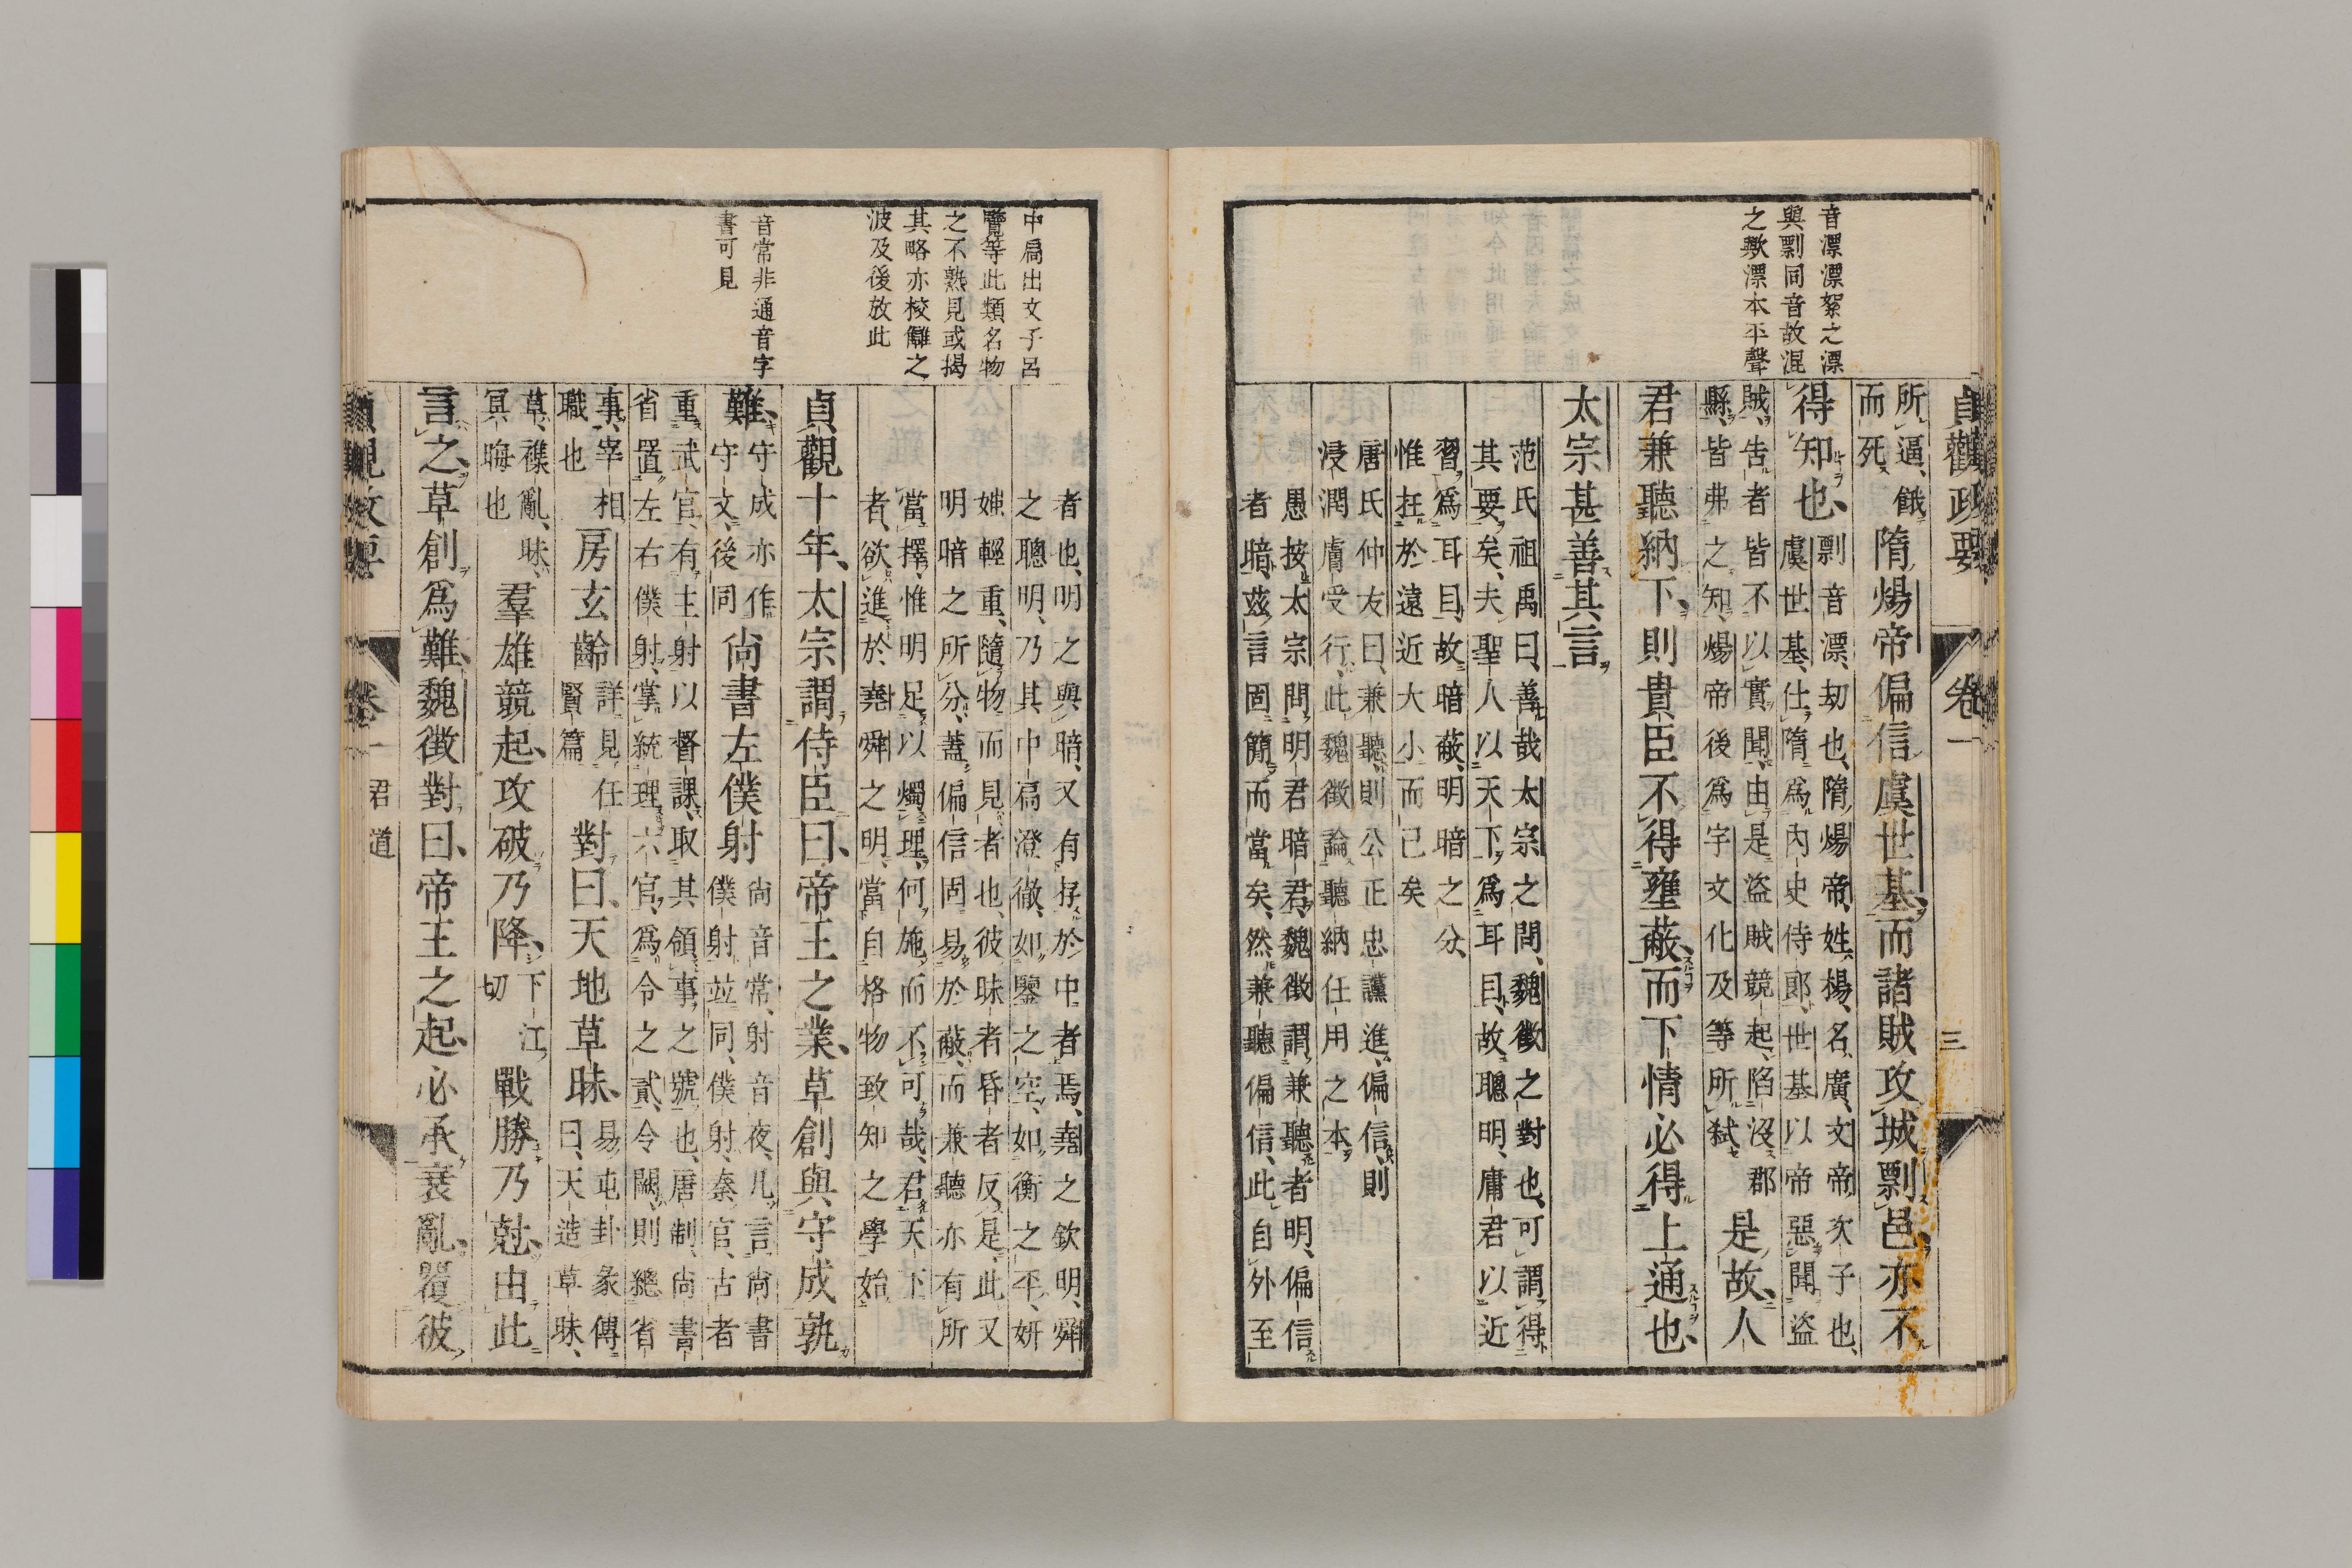 貞觀政要 卷一 三
音漂漂絮之漂
與剽同音故混
之歟漂本平聲
所逼、餓
而死
隋煬帝偏信虞世基、而諸賊攻城剽邑、亦不
得知也、
剽音漂、刼也、隋煬帝、姓楊、名廣、文帝次子也、
虞世基、仕隋爲內史侍郎、世基以帝惡聞盜
賊、告者皆不以實聞、由是盜賊競起、陷沒郡
縣、皆弗之知、煬帝後爲宇文化及等所弑
是故、人
君兼聽納下、則貴臣不得壅蔽、而下情必得上通也、
太宗甚善其言
范氏祖禹曰、善哉太宗之問、魏徵之對也、可謂得
其要矣、夫聖人以天下爲耳目、故聰明、庸君以近
習爲耳目、故暗蔽、明暗之分、
惟在於遠近大小而已矣
唐氏仲友曰、兼聽則公正忠讜進、偏信則
浸潤膚受行、此魏徵論聽納任用之本
愚按太宗問明君暗君、魏徵謂兼聽者明、偏信
者暗、茲言固簡而當矣、然兼聽偏信、此自外至
中扃出文子呂
覽等此類名物
之不熟見或揭
其略亦校讎之
波及後放此
音常非通音字
書可見
者也、明之與暗、又有存於中者焉、堯之欽明、舜
之聰明、乃其中扃澄徹、如鑒之空、如衡之平、妍
媸輕重、隨物而見者也、彼昧者昏者反是、此又
明暗之所分、蓋偏信固易於蔽、而兼聽亦有所
當擇、惟明足以燭理、何施而不可哉、君天下
者、欲進於堯舜之明、當自格物致知之學始
貞觀十年、太宗謂侍臣曰、帝王之業、草創與守成孰
難、
守成亦作
守文、後同
尚書左僕射
尚音常、射音夜、凡言尚書
僕射竝同、僕射、秦官、古者
重武官、有主射以督課、取其領事之號也、唐制、尚書
省置左右僕射、掌統理六官、爲令之貳、令闕、則總省
事、宰相
職也
房玄齡
詳見任
賢篇
對曰、天地草昧、
易屯卦彖傳
曰、天造草昧、
草、襍亂、昧、
冥晦也
羣雄競起、攻破乃降、
下江
切
戰勝乃尅、由此
言之、草創爲難、魏徵對曰、帝王之起、必承衰亂、覆彼
貞觀政要 卷一 君道